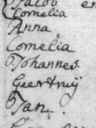 Jacob en
Cornelia
Anna
Cornelia
Johannes.
Geertruij
Jan.